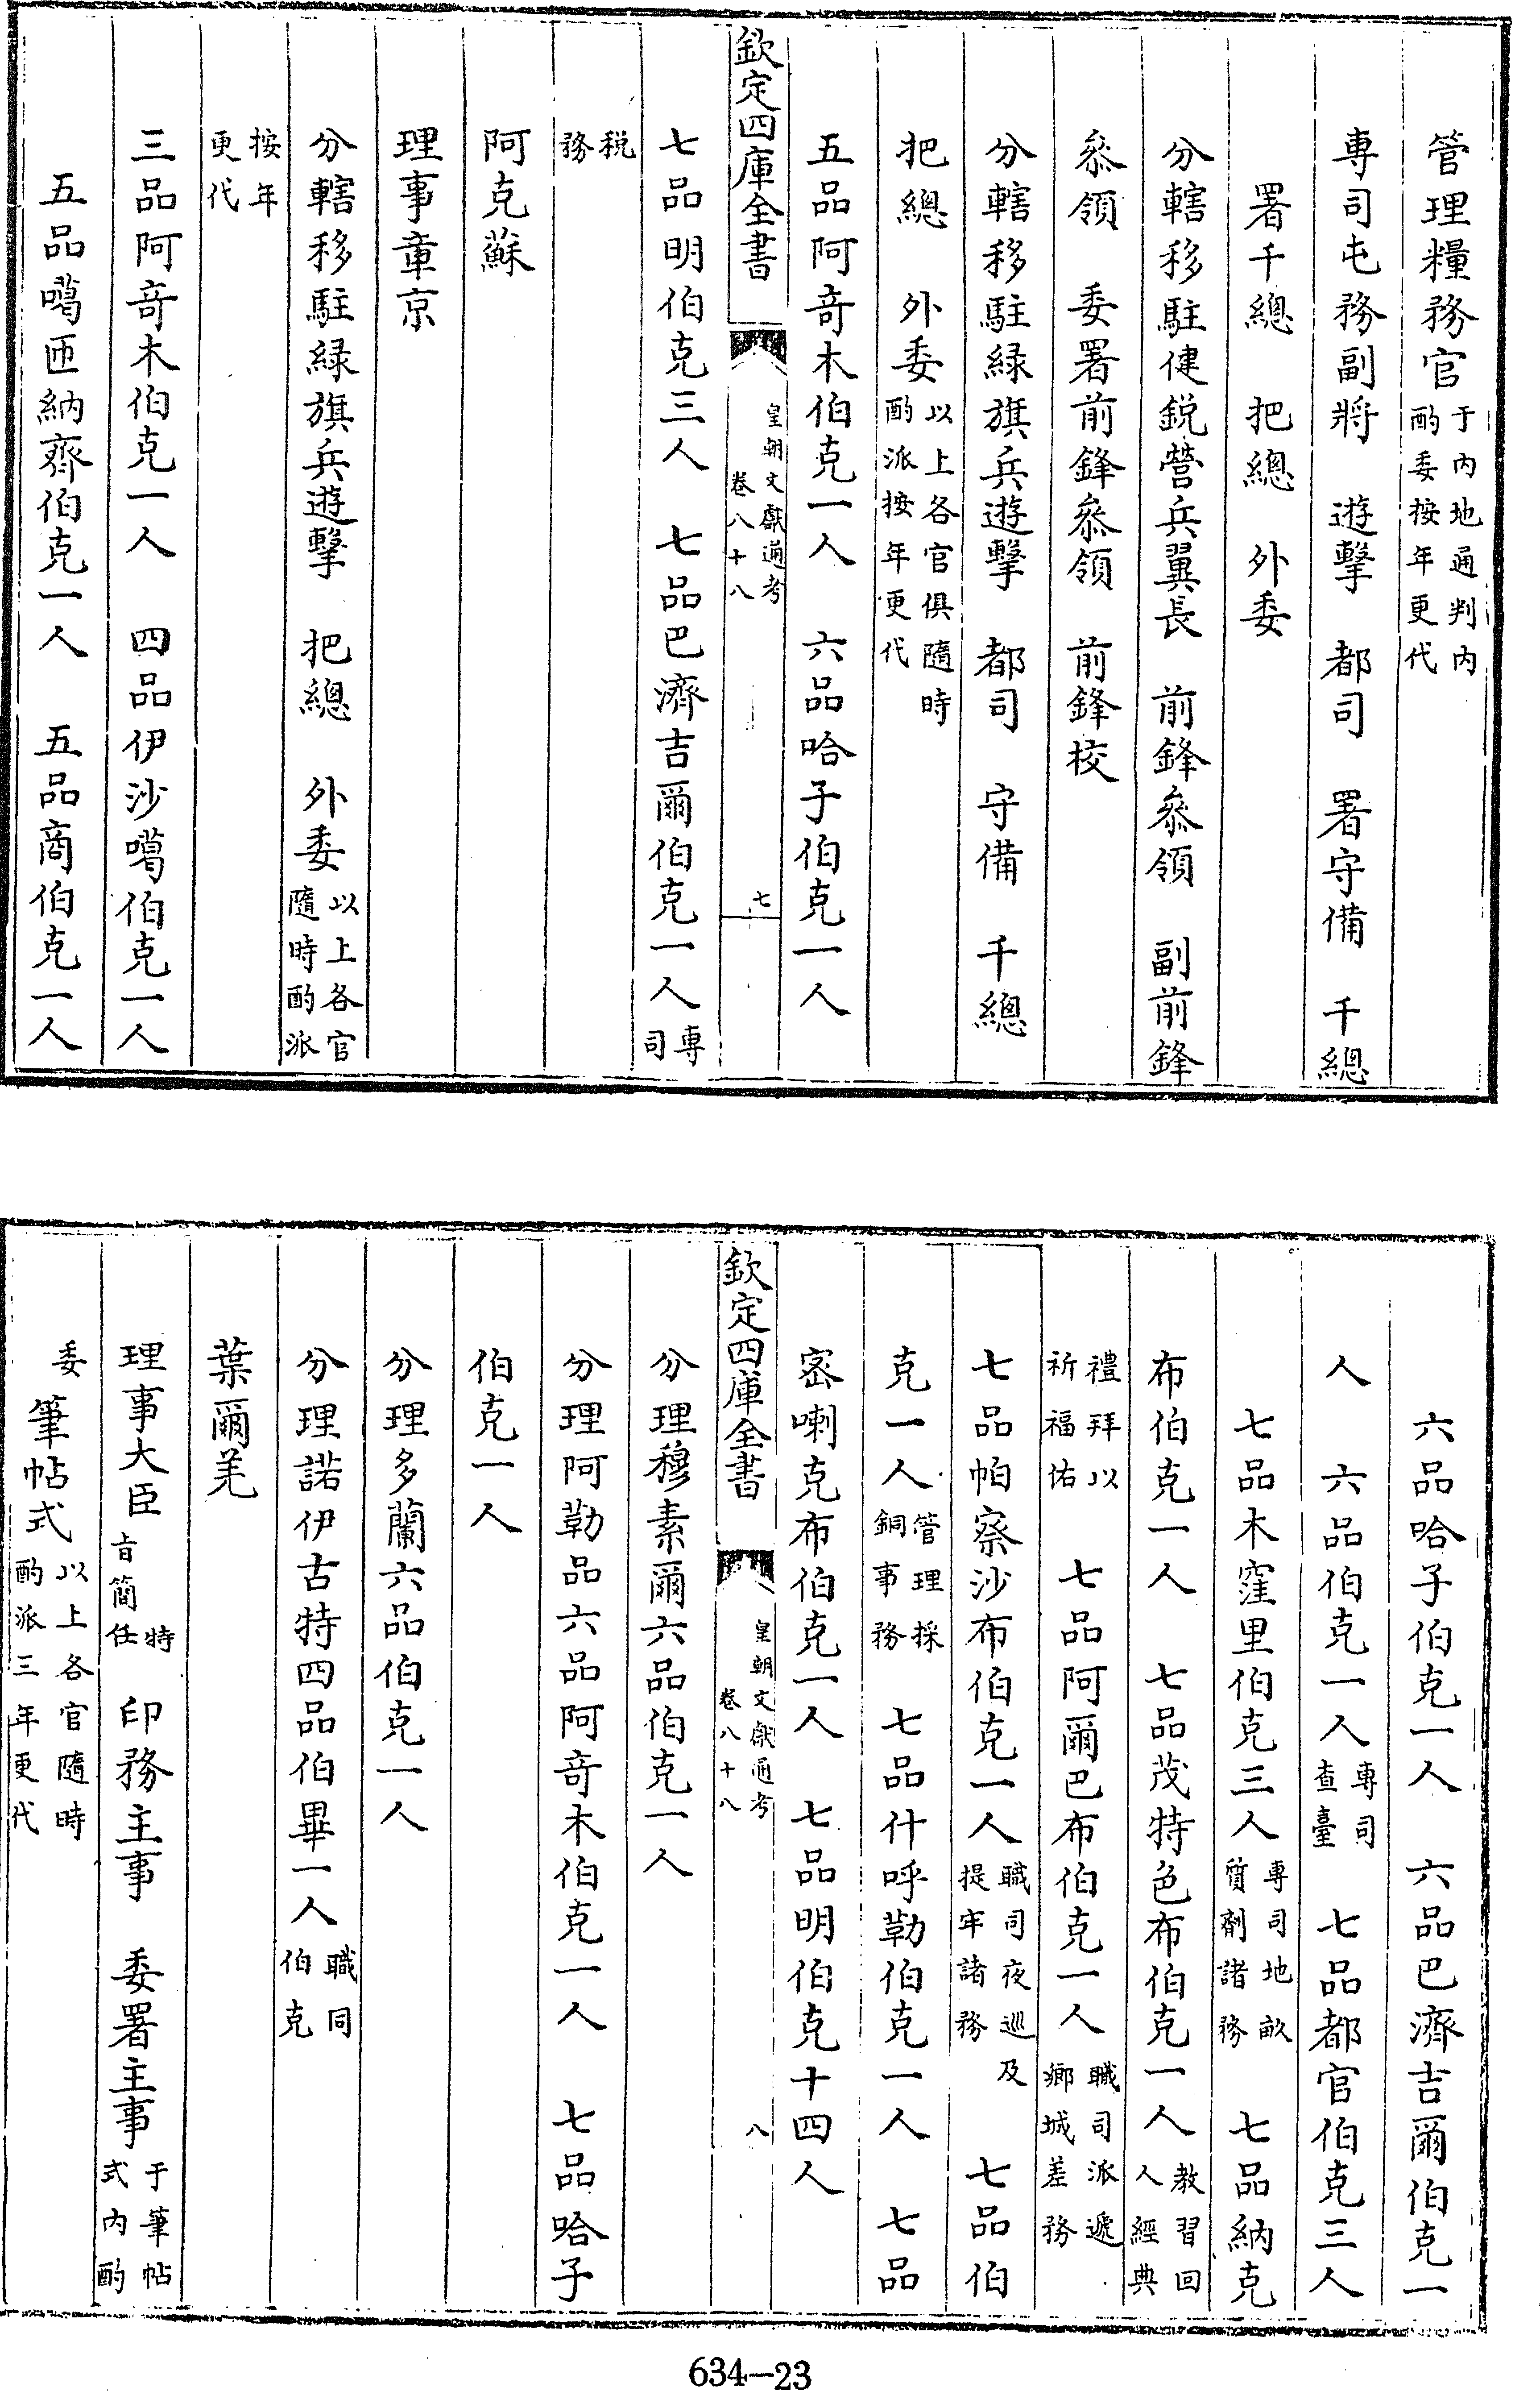 管理糧務官于内地通判内酌委按年更代
專司屯務副將　遊擊　都司　署守備　千總
署千總　把總　外委
分轄移駐健銳營兵翼長　前鋒叅領　副前鋒
叅領　委署前鋒叅領　前鋒校
分轄移駐緑旗兵遊擊　都司　守備　千總
把總　外委以上各官俱隨時酌派按年更代
五品阿竒木伯克一人　六品哈子伯克一人
欽定四庫全書　皇朝文獻通考卷八十八　七
七品明伯克三人　七品巴濟吉爾伯克一人專司
税務
阿克蘇
理事章京
分轄移駐緑旗兵遊擊　把總　外委以上各官隨時酌派
按年更代
三品阿竒木伯克一人　四品伊沙噶伯克一人
五品噶匝納齊伯克一人　五品商伯克一人
六品哈子伯克一人　六品巴濟吉爾伯克一
人　六品伯克一人專司查臺　七品都官伯克三人
七品木窪里伯克三人專司地畝質劑諸務　七品納克
布伯克一人　七品茂特色布伯克一人教習回人經典
禮拜以祈福佑　七品阿爾巴布伯克一人職司派遞鄉城差務
七品帕察沙布伯克一人職司夜巡及提牢諸務　七品伯
克一人管理採銅事務　七品什呼勒伯克一人　七品
密喇克布伯克一人　七品明伯克十四人
欽定四庫全書　皇朝文獻通考卷八十八　八
分理穆素爾六品伯克一人
分理阿勒品六品阿竒木伯克一人　七品哈子
伯克一人
分理多蘭六品伯克一人
分理諾伊古特四品伯畢一人職同伯克
葉爾羌
理事大臣特㫖簡任　印務主事　委署主事于筆帖式内酌
委　筆帖式以上各官隨時酌派三年更代
634–23